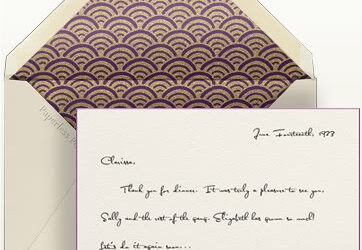 Paperless
June Fourteenth, 1977
Clarissa,
Thank you for dinner. It was truly a pleasure to see you,
Sally and the rest of the gang. Elizabeth has grown so much!
Let's do it again soon...